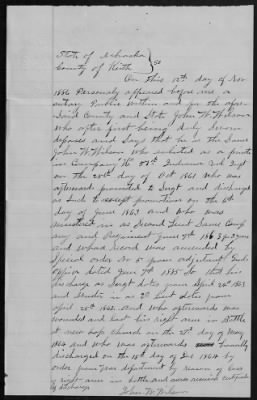 State of Nebraska
County of Keith } SS
On this 12th day of Nov
1886 Personally appeared before me, a
notary Public within and for the afore-
Said County and State John W. Wilson
Who after first being duly Sworn
deposes and Says that he is the Same
John W. Wilson who enlisted as a privt
in Company "H" 57th Indiana Vol Inft
on the 28th day of Oct 1861 who was
afterwards promoted to Sergt and discharged
as Such to accept promotion on the 6th
day of June 1863 and who was
mustered in as Second Lieut Same Comp-
any and Regiment June 7th 1863
and whose Record was amended by
Special order No 5 from adjutant Genl
office dated June 7th 1885 So that his
discharge as Sergt dates from April 24th 1863
and Muster in as 2d Lieut dates from
April 25th 1863 and who afterwards was
wounded and lost his right arm in Battle
at new hope church on the 27th day of May
1864 and who was afterwards honorably
discharged on the 15th day of Dec 1864 by
order from War department by reason of loss
of right arm in battle and
by discharge
John W Wilson